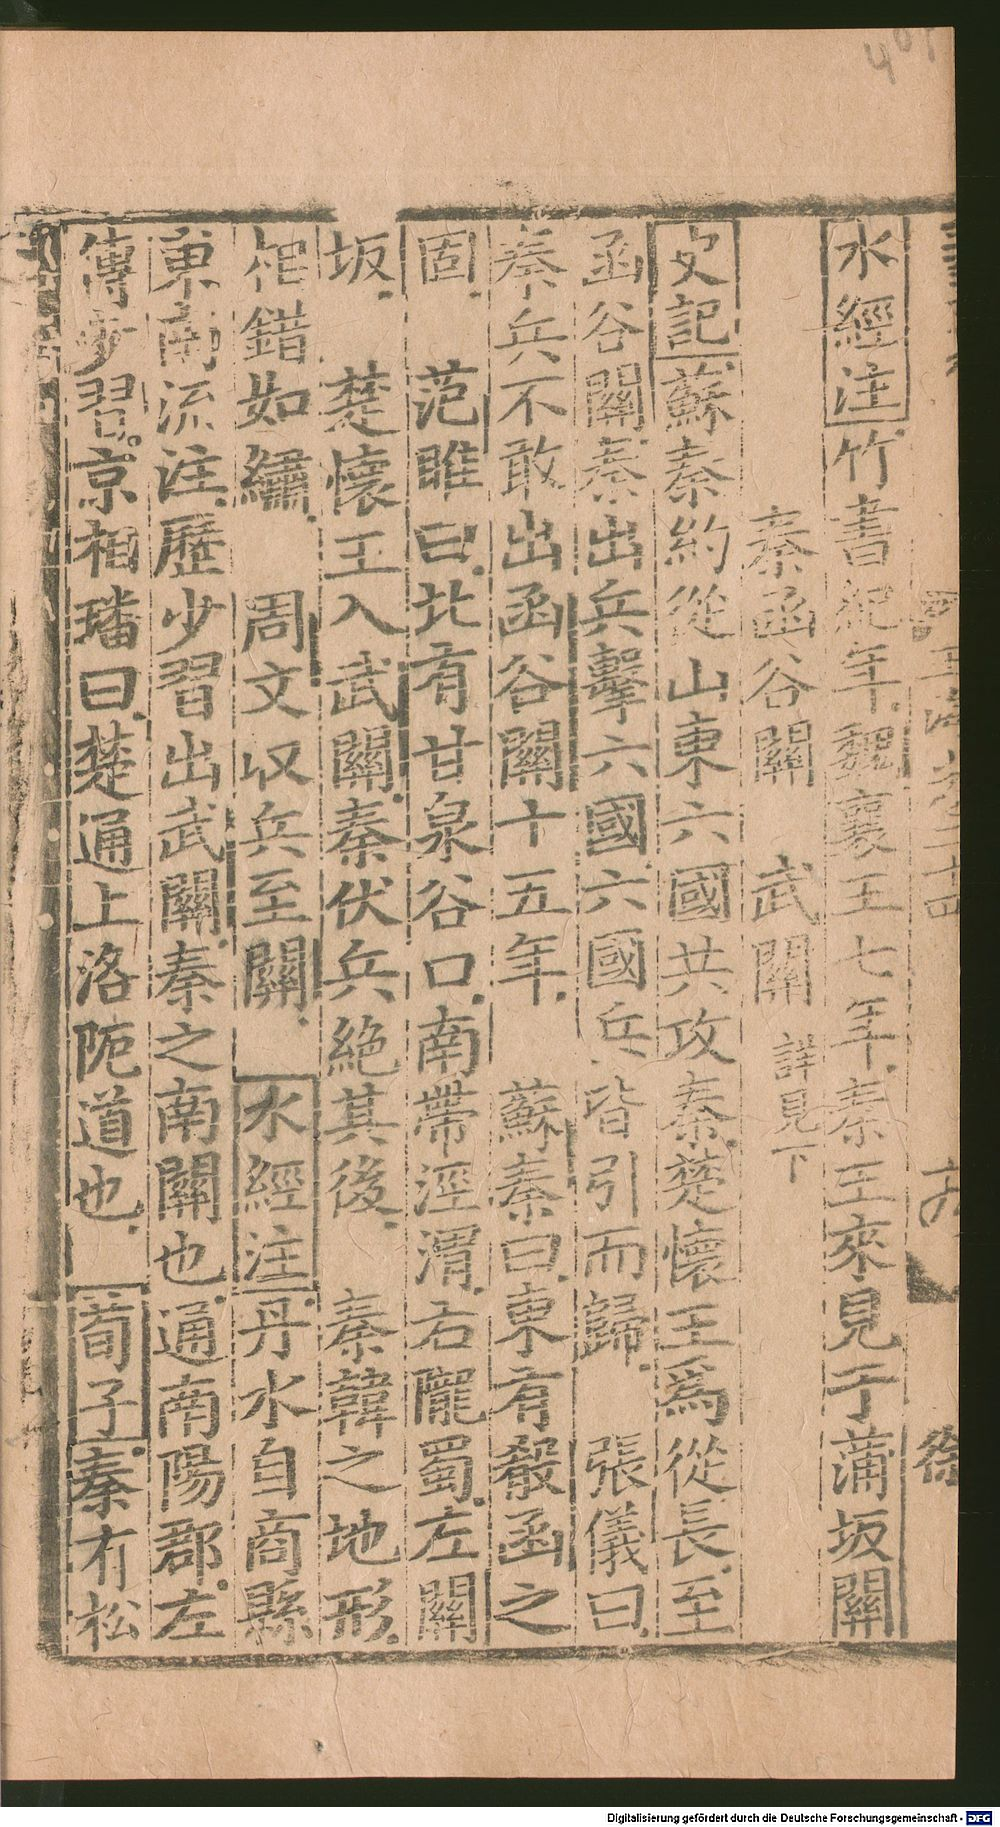 水經注竹書紀年魏襄王七年秦王來見于蒲坂關
秦函谷關 武關 詳見下
史記蘇秦約從山東六國共攻秦楚懷王爲從長至
函谷關秦出兵擊六國六國兵皆引而歸 張儀曰
秦兵不敢出函谷關十五年 蘇秦曰東有殽函之
固 范雎曰北有甘泉谷口南帶涇渭右隴蜀左關
坂 楚懷王入武關秦伏兵絕其後 秦韓之地形
相錯如繡 周文收兵至關 水經注丹水自商縣
東南流注歷少習出武關秦之南關也通南陽郡左
傳少習京相璠曰楚通上洛阨道也 荀子秦有松
徐
401
Digitalisierung gefördert durch die Deutsche Forschungsgemeinschaft - DFG